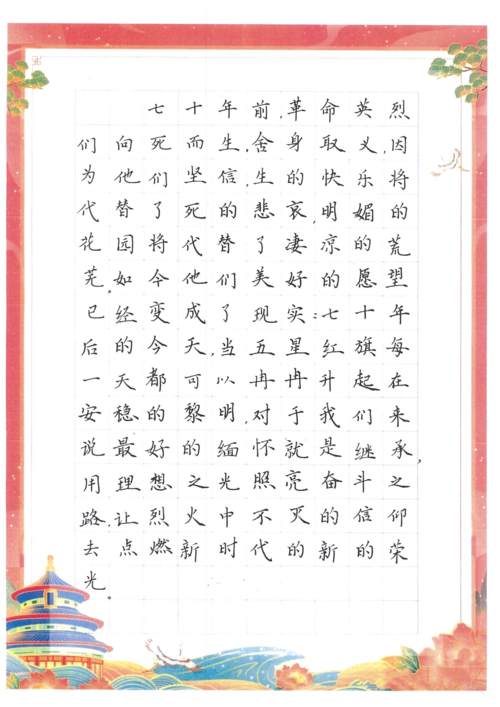 七十年前,革命英烈
们向死而生,舍身取义,因
为他们坚信,生的快乐将
代替了死的悲哀,明媚的
花园将代替了凄凉的荒
芜,如今他们美好的愿望
已经变成了现实:七十年
后的今天,当五星红旗每
一天都可以冉冉升起在
安稳的黎明,对于我们来
说最好的缅怀就是继承,
用理想之光照亮奋斗之
路,让烈火中不灭的信仰
去点燃新时代的新的荣
光。